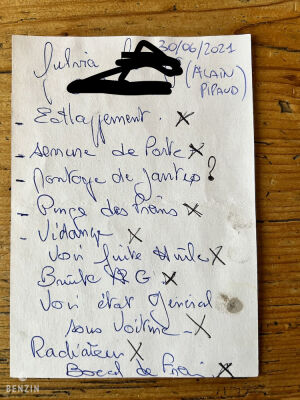 Sylvia 30/06/2021
(ALAIN
PIPAUD)
- Echappement. X
- serrure de Porte X
- Montage de Jantes ?
- Purge des Freins X
- Vidange X
Voir fuite Huile X
Boite X
Voir état General
sous Voiture - X
Radiateur X
Bocal de Frein. X
BENZIN